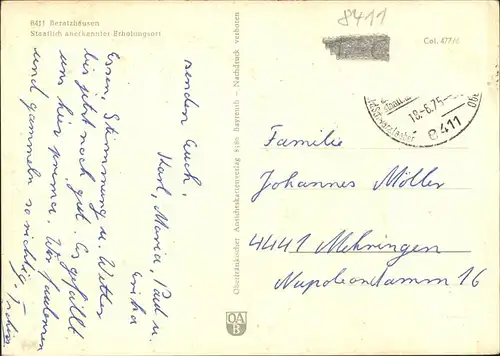 8411 Beratzhausen
Staatlich anerkannter Erholungsort
Essen, Stimmung u. Wetter
bis jetzt noch gut. Es gefällt
uns hier prima. Wir faulenzen
und gammeln so richtig. Tschüss
senden Euch,
Karl, Maria, Paul u.
Oberfränkischer Ansichtskartenverlag 8580 Bayreuth - Nachdruck verboten
OA
B
8411
Col. 477
18.-6.75
8411
Familie
Johannes Möller
4441 Mehringen
Napoleondamm 16